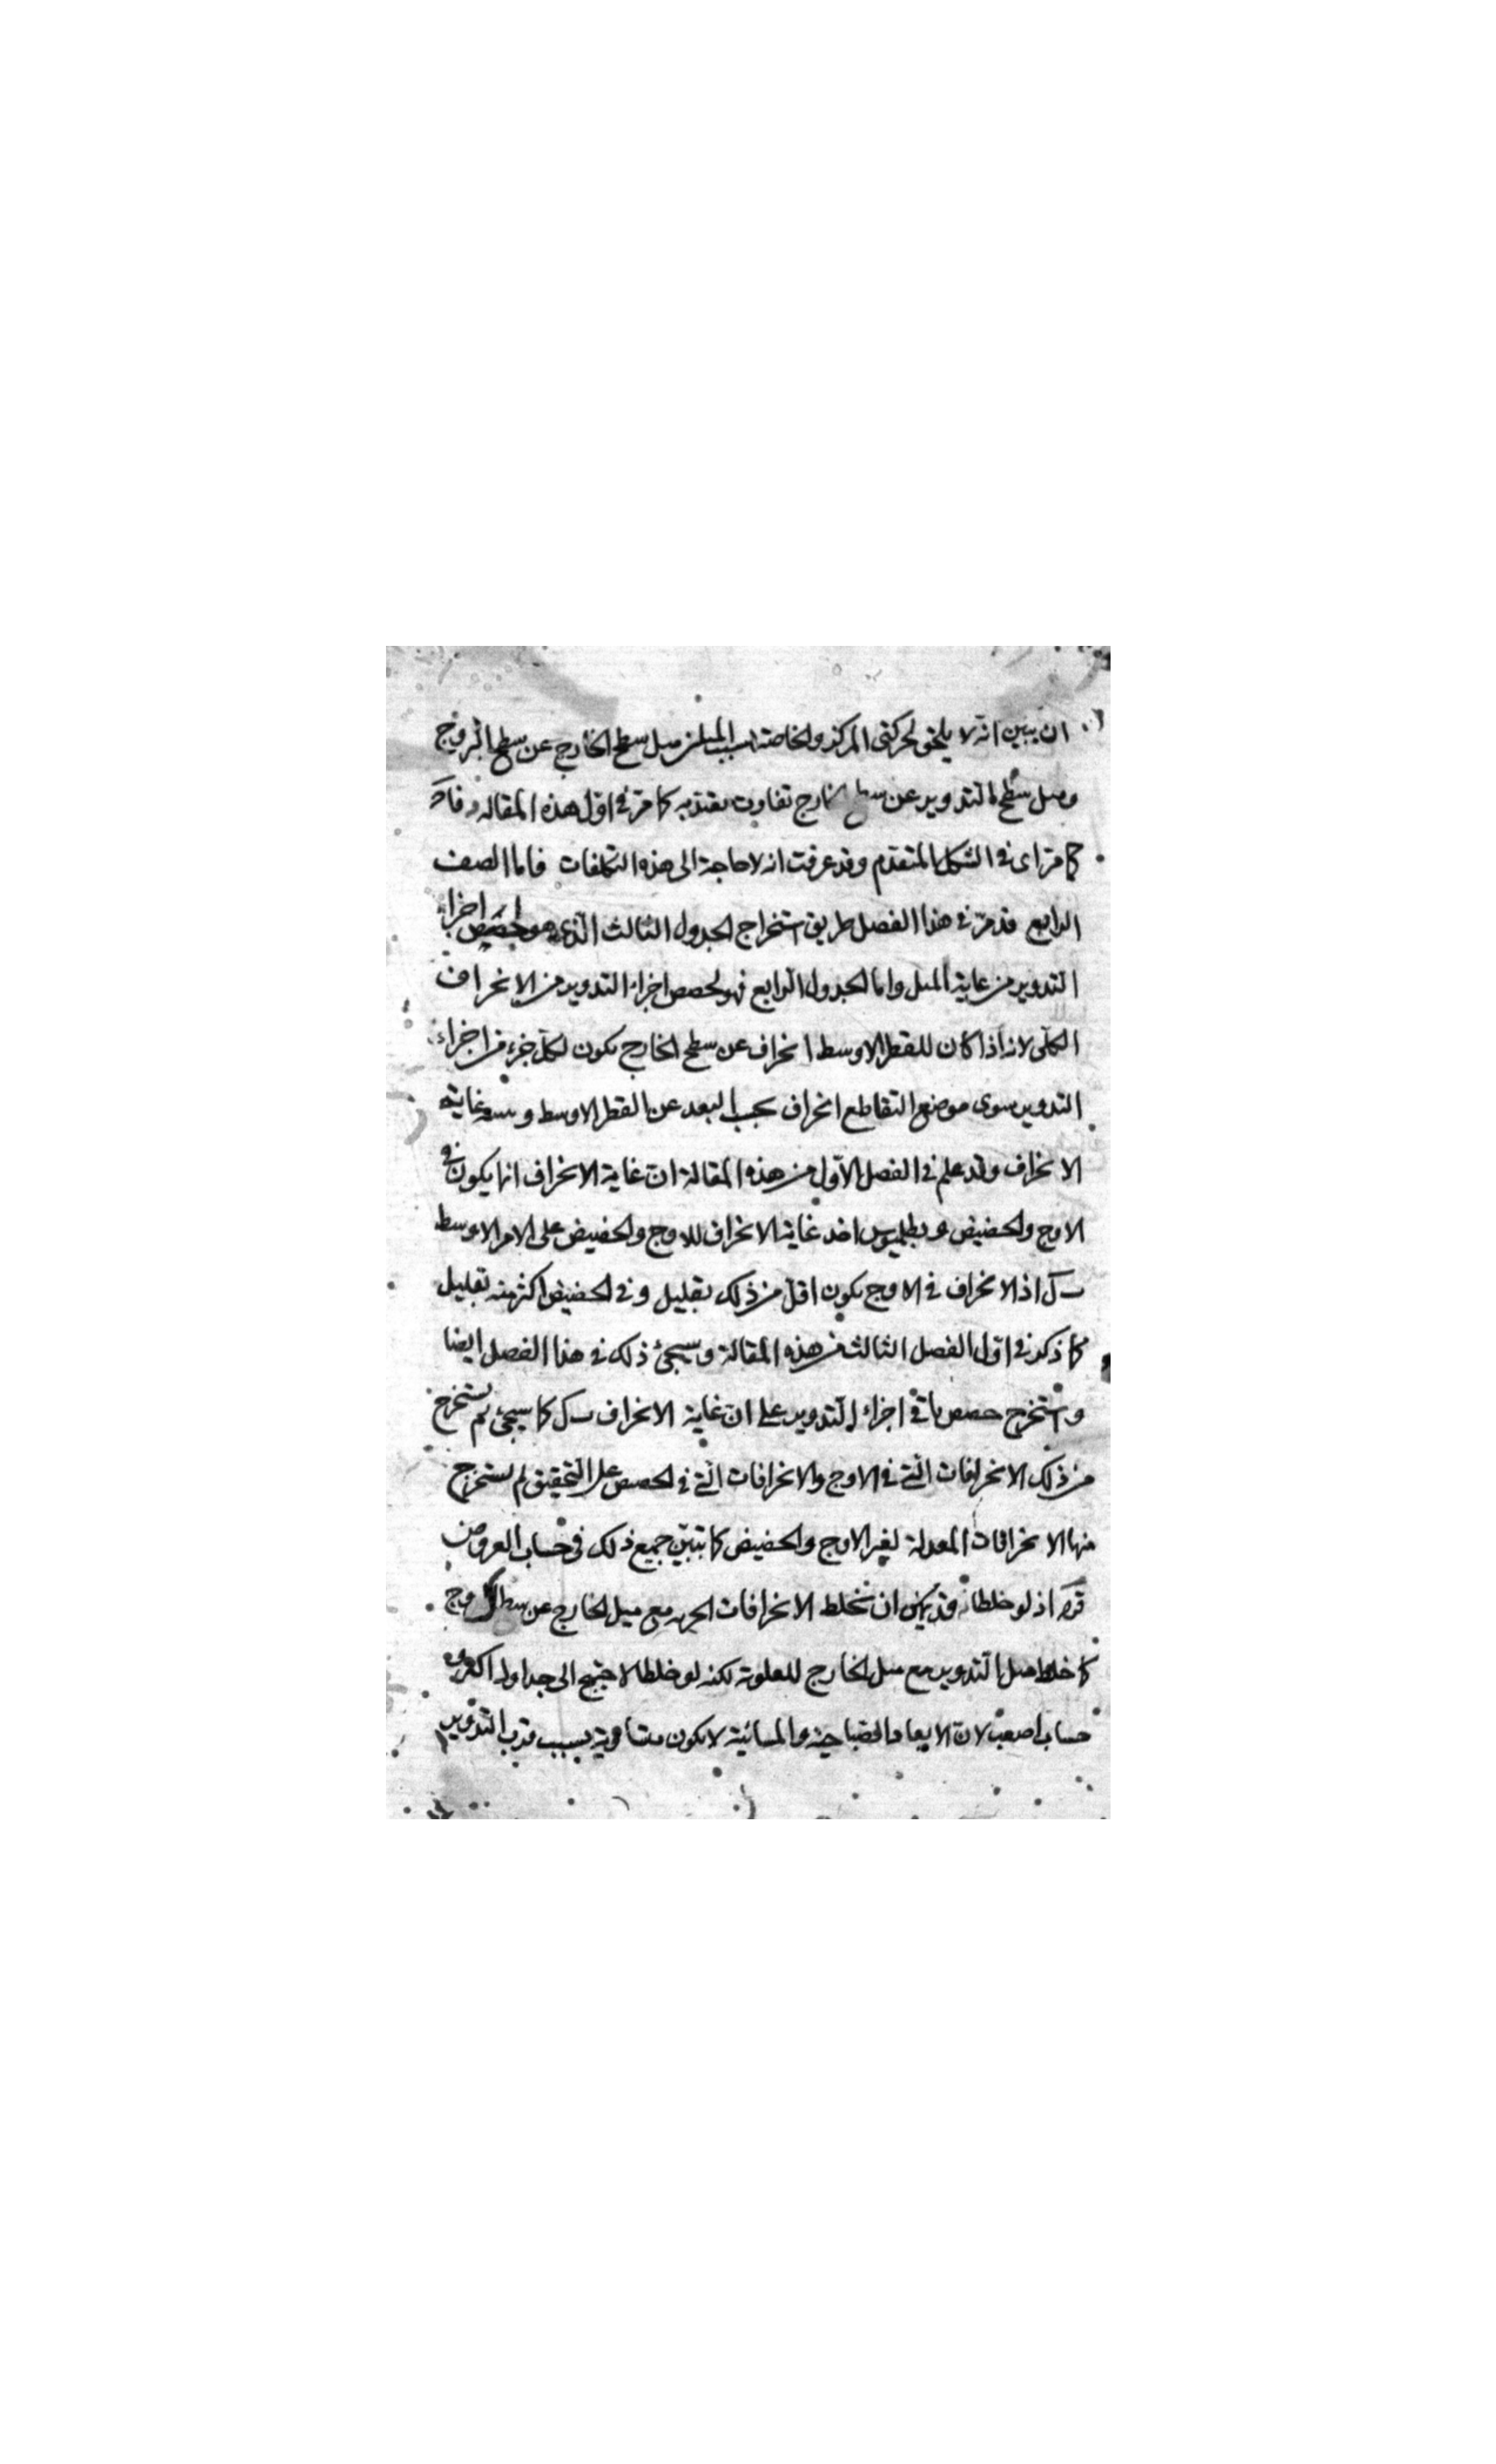 ان يبين انه لا يلحق لحركتى المركز والخاصة بسبب الميلين ميل سطح الخارج عن سطح البروج
وميل سطح التدوير عن سطح الخارج تفاوت يعتد به كما مر فى اول هذه المقاله
كما مر اى فى الشكل المتقدم وقد عرفت انه لا حاجة الى هذه التكلفات فاما الصف
الرابع قد مر فى هذا الفصل طريق استخراج الجدول الثالث الذى هو لحصص اجزاء
التدوير من غاية الميل واما الجدول الرابع فهو لحصص اجزاء التدوير من الانحراف
الكلى لانه اذا كان للقطر الاوسط انحراف عن سطح الخارج يكون لكل جزء من اجزاء
التدوير سوى موضع التقاطع انحراف بحسب البعد عن القطر الاوسط وبسبب غاية
الانحراف وقد علم فى الفصل الاول من هذه المقالة ان غاية الانحراف انما يكون فى
الاوج والحضيض وبطلميوس اخذ غاية الانحراف للاوج والحضيض على الامر الاوسط
ب ل اذ الانحراف فى الاوج يكون اقل من ذلك بقليل وفى الحضيض اكثر منه بقليل
كما ذكر فى اول الفصل الثالث من هذه المقالة وسيجئ ذلك فى هذا الفصل ايضا
واستخرج حصص باقى اجزاء التدوير على ان غاية الانحراف ب ل كما سيجئ ثم يستخرج
من ذلك الانحرافات التى فى الاوج والانحرافات التى فى الحضيض على التحقيق ثم يستخرج
منها الانحرافات المعدلة لغير الاوج والحضيض كما تبين جميع ذلك فى حساب العروض
قوله اذ لو خلطا قد يمكن ان تخلط الانحرافات مع ميل الخارج عن سطح البروج
كما خلط ميل التدوير مع ميل الخارج للعلوية لكنه لو خلطا لاحتيج الى جداول اكثر و
حساب اصعب لان الابعاد الصباحية والمسائية لا يكون متساوية بسبب قرب التدوير